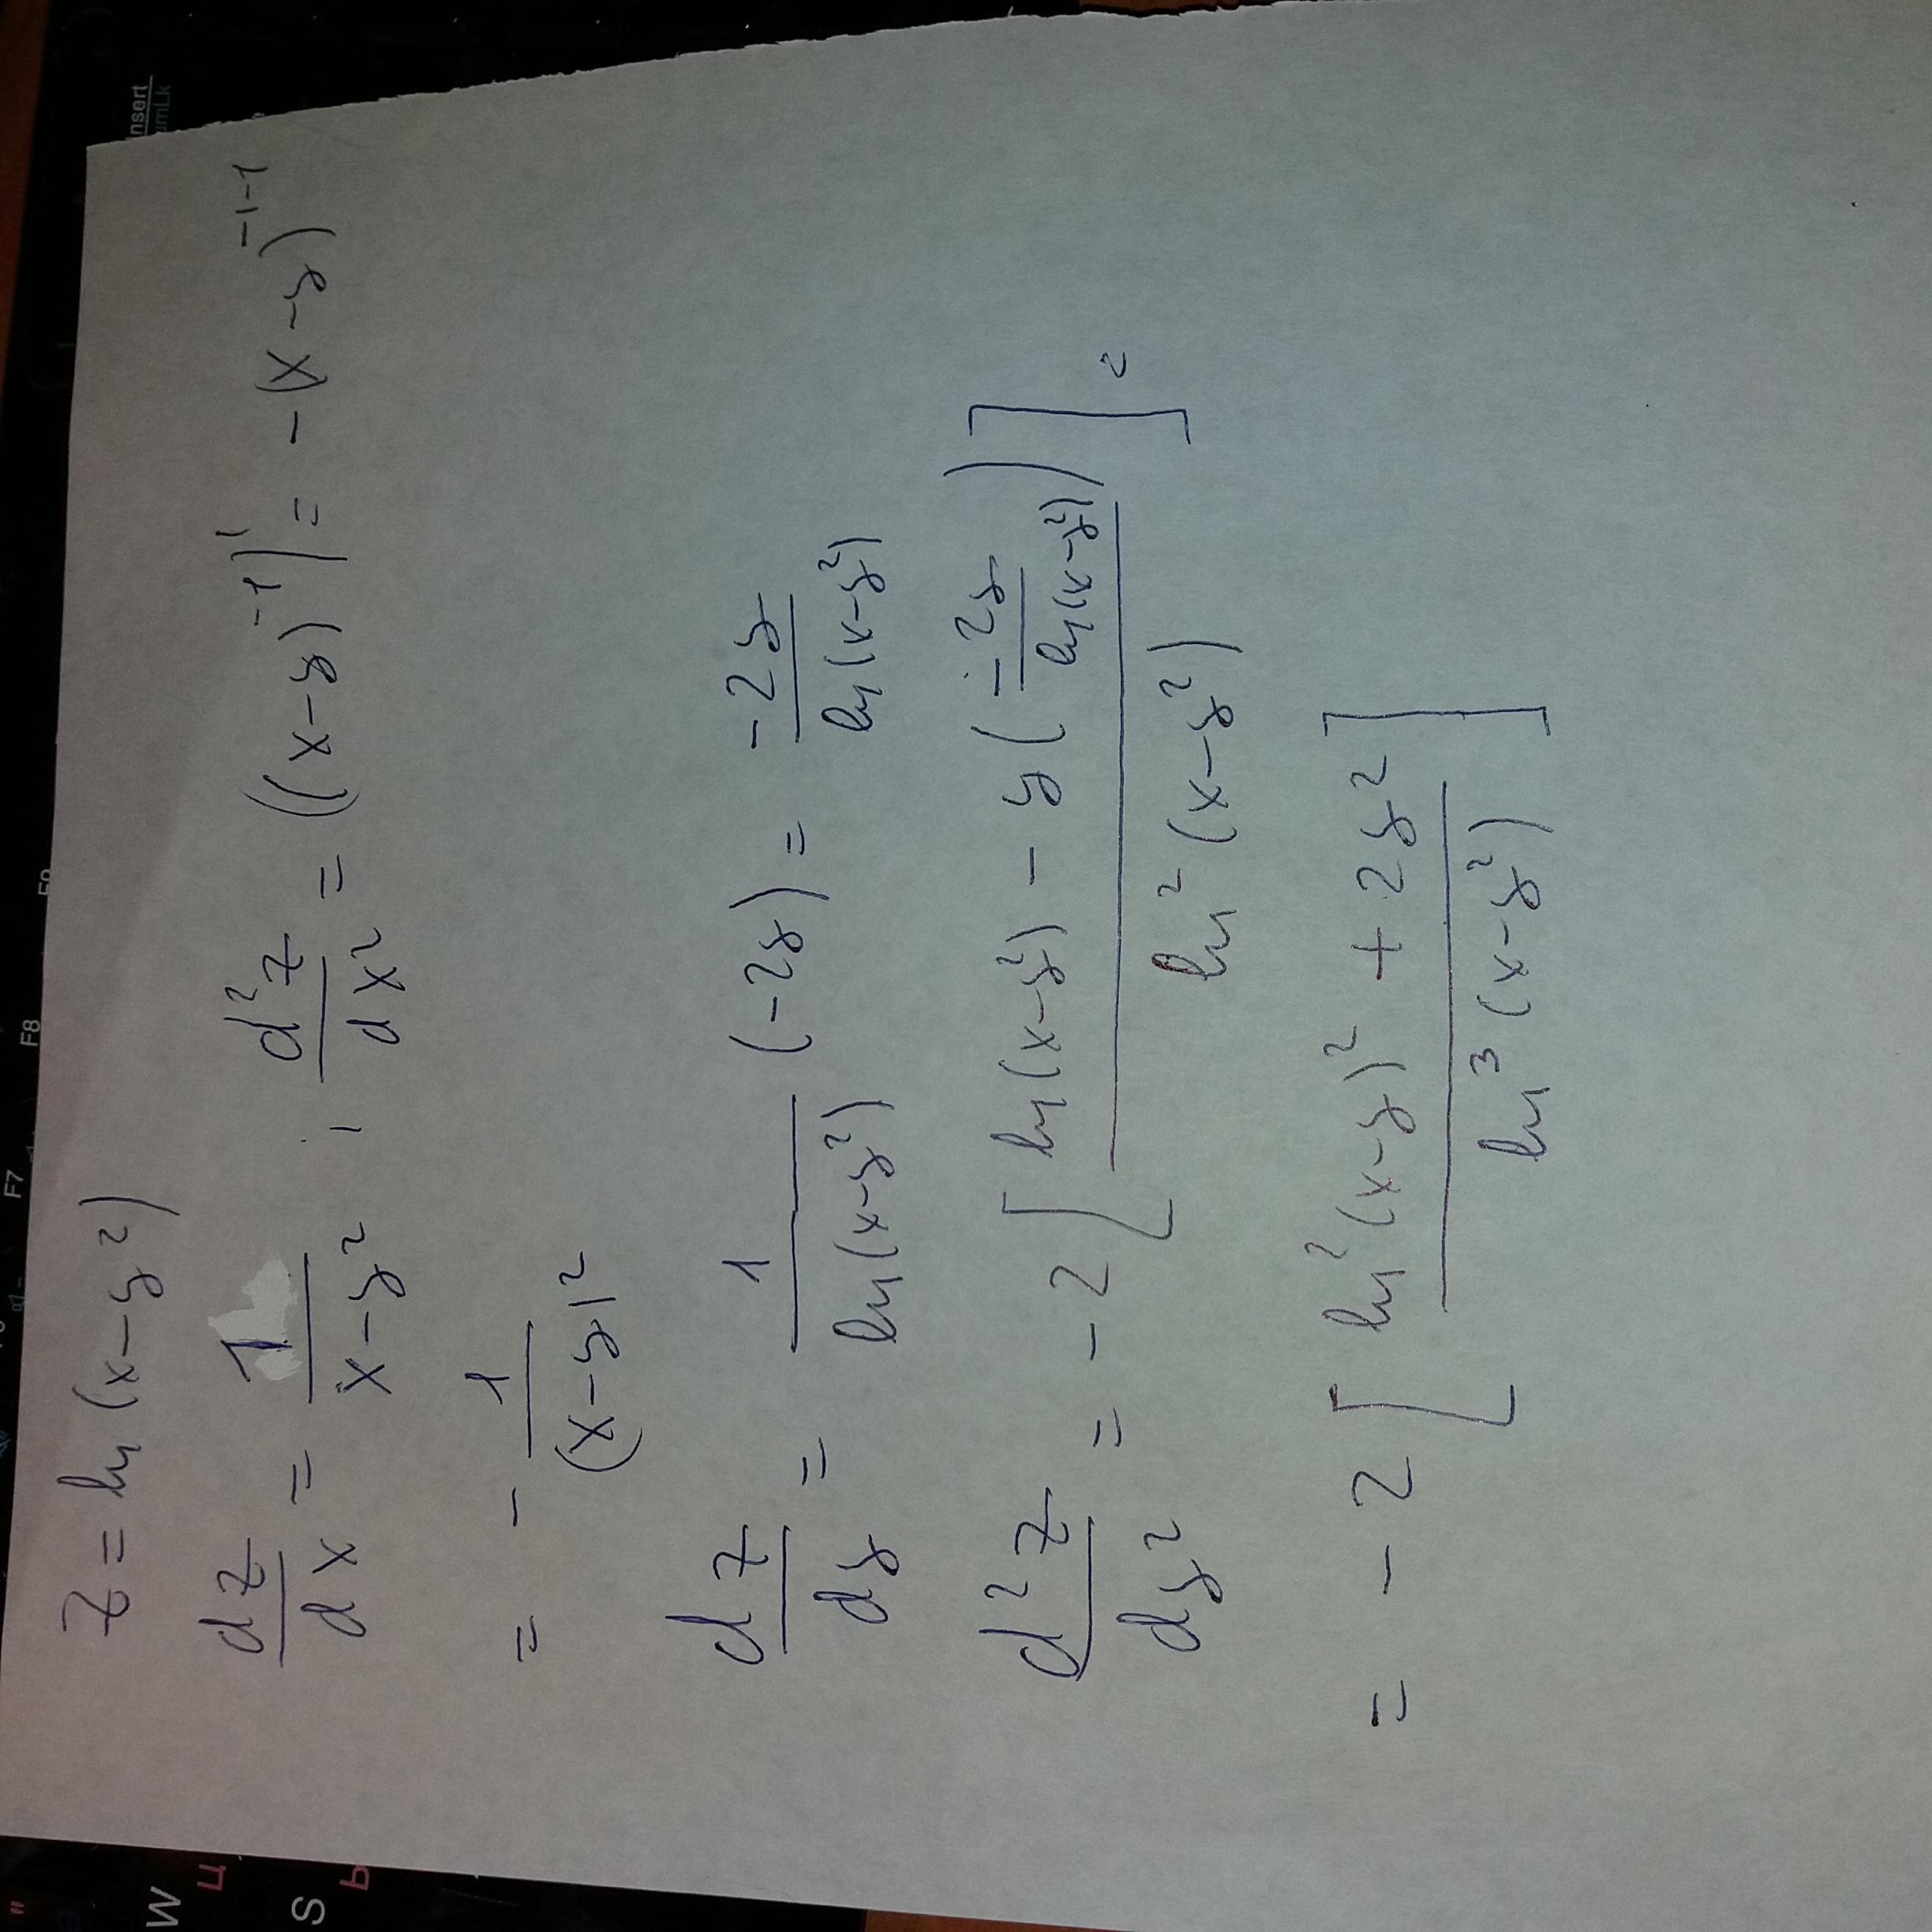 z = ln(x-y²)
dz/dx = 1/(x-y²) ; d²z/dx² = ((x-y)⁻¹)' = -(x-y)⁻¹⁻¹
= - 1/(x-y)²
dz/dy = 1/ln(x-y²) (-2y) = -2y/ln(x-y²)
d²z/dy² = -2[(ln(x-y²) - y(-2y/ln(x-y²)))/ln²(x-y²)] =
= -2[(ln²(x-y)² + 2y²)/ln³(x-y²)]
nsert
umLk
F7
F8
F9
W
Ц
S
Ь
"